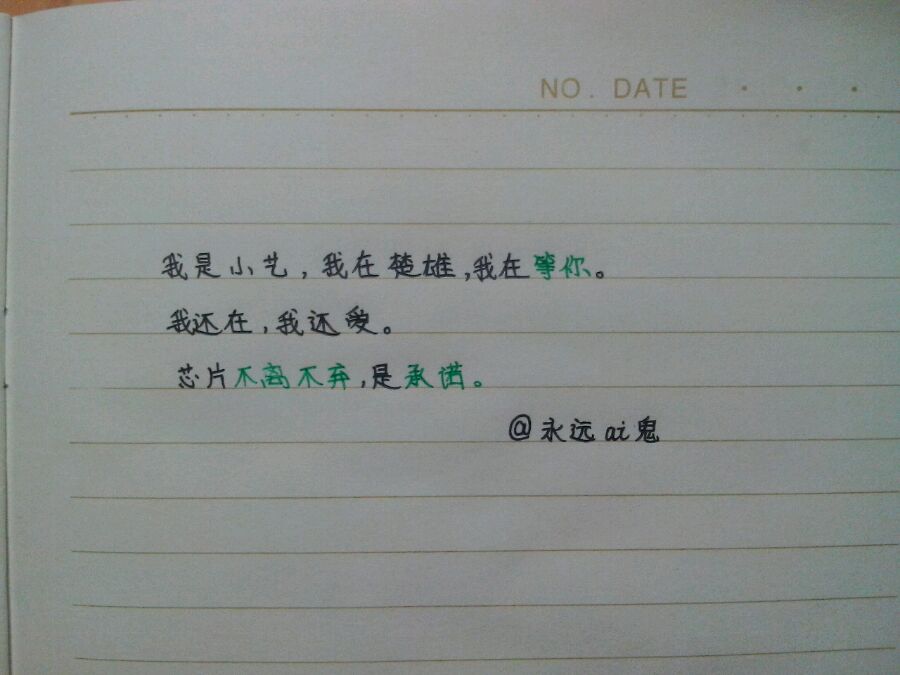 NO. DATE
我是小艺，我在楚雄，我在等你。
我还在，我还爱。
芯片不离不弃，是承诺。
@永远ai鬼